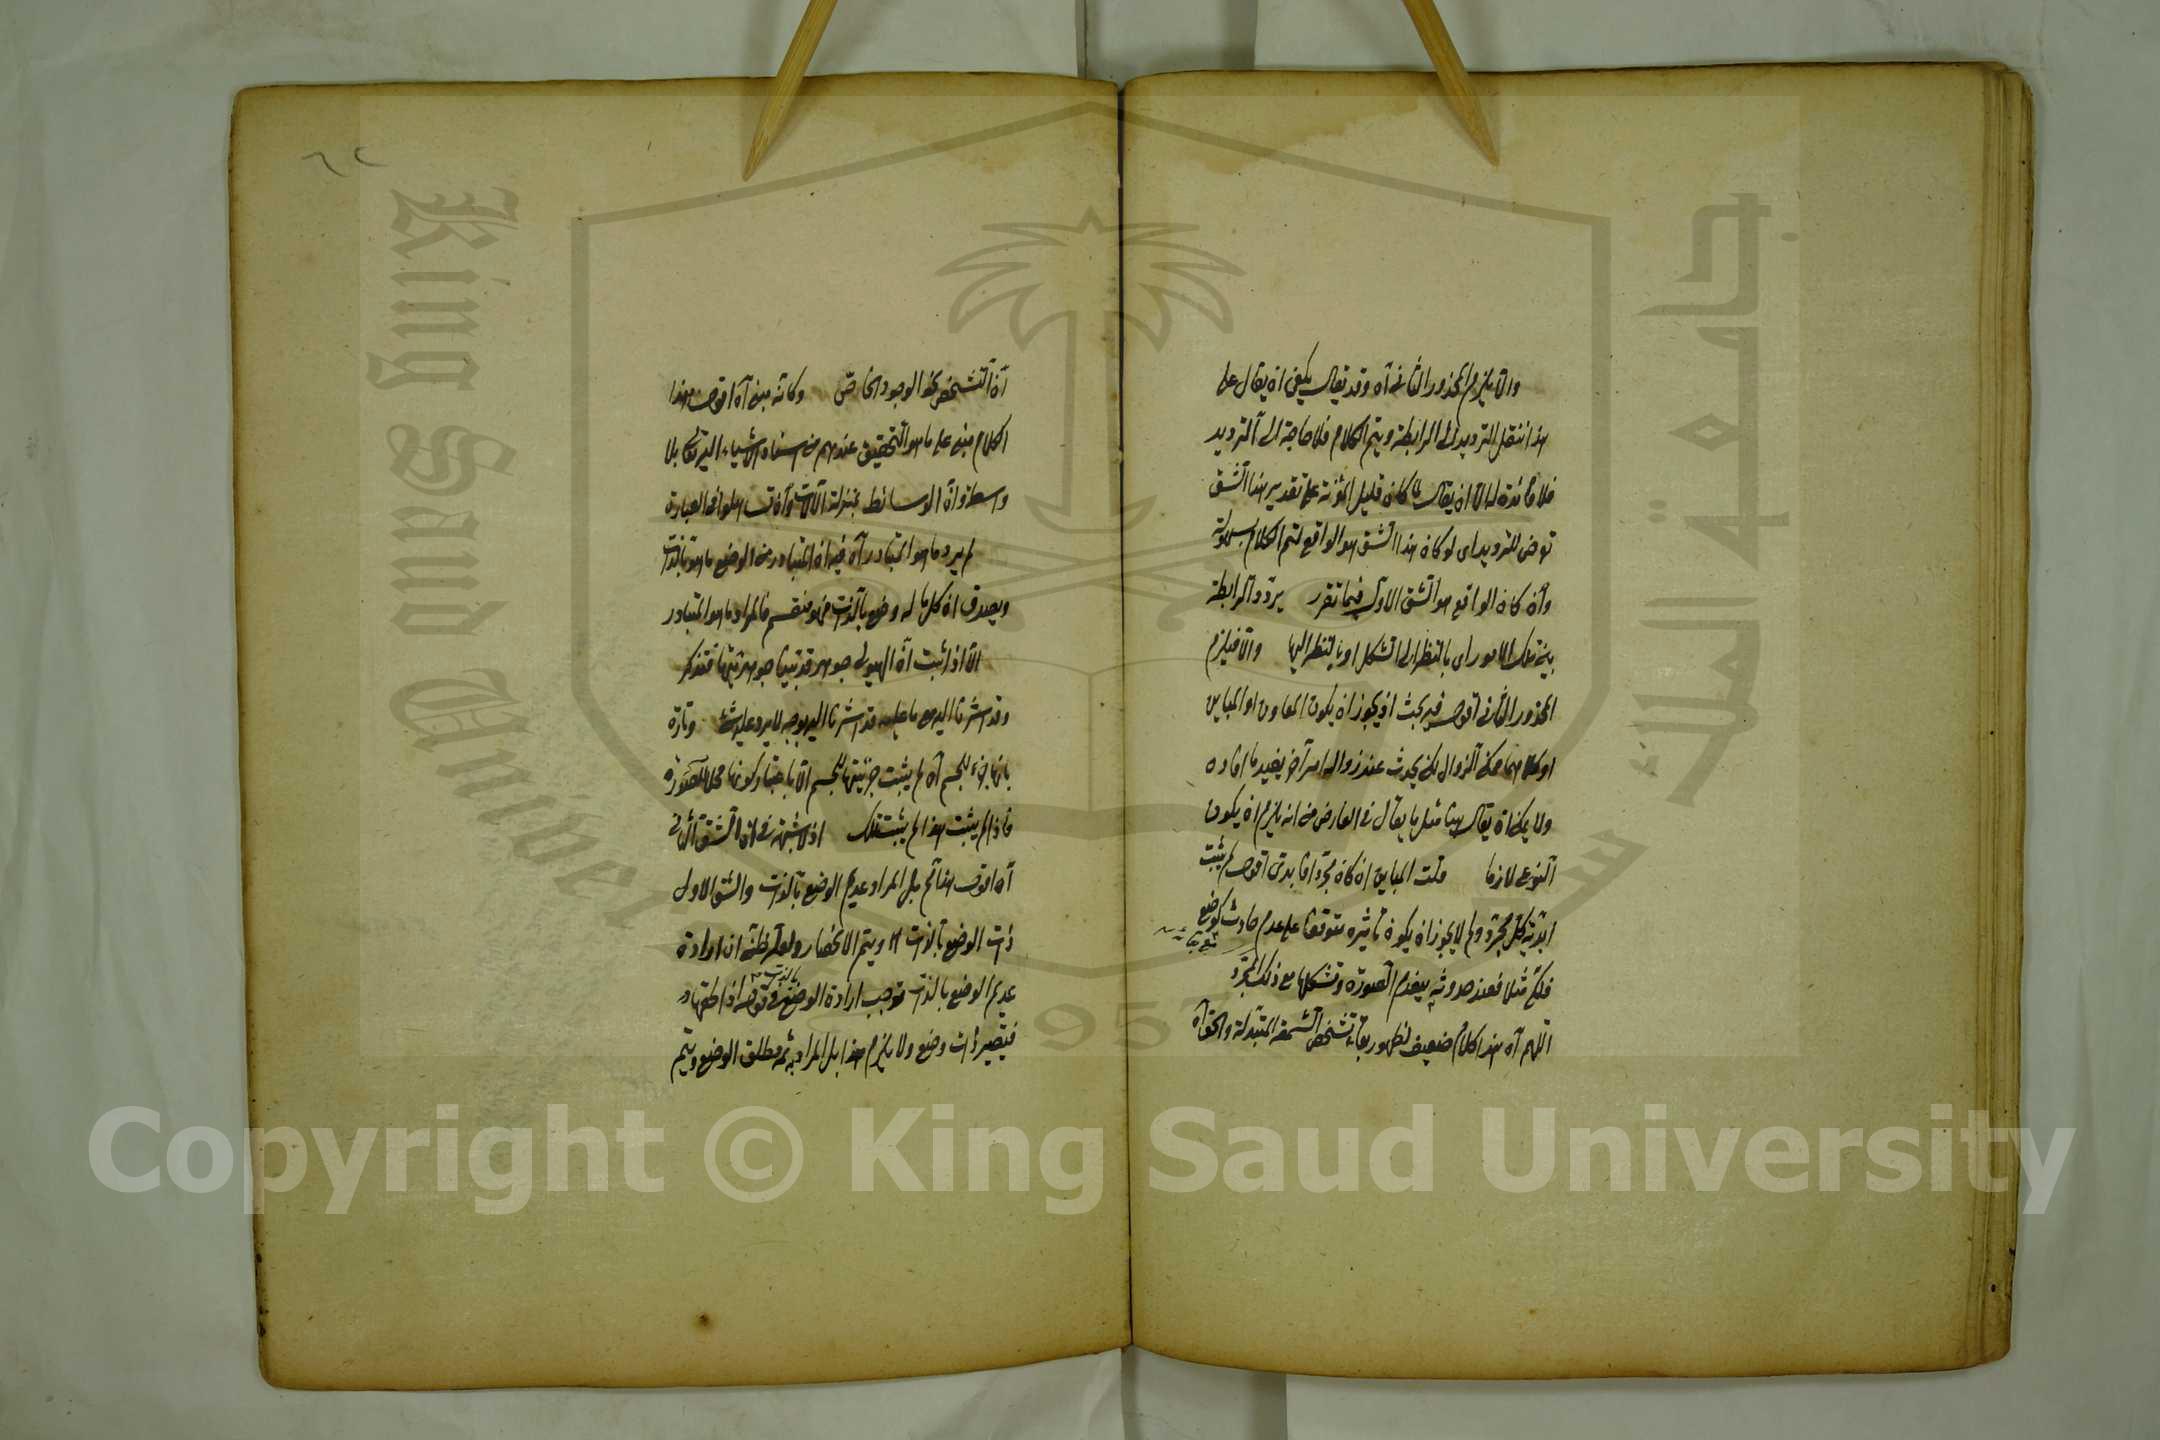 والا يلزم المحذور الثاني آه وقد يقال يكفي ان يقال على
هذا ننقل الترديد الى الرابطة ويتم الكلام فلا حاجة الى الترديد
فلا فائدة له الا ان يقال لما كان قليل المؤنة على تقدير هذا الشق
تعرض للترديد اى لو كان هذا الشق هو الواقع لتم الكلام بسهولة
وان كان الواقع هو الشق الاول فيما تقرر يردد الرابطة
بين تلك الامور اى بالنظر الى الشكل او بالنظر اليها والا فيلزم
المحذور الثاني اقول فيه بحث اذ يجوز ان يكون المعاون او المباين
او كلاهما ممكن الزوال لكن يحدث عند زواله امر آخر يفيد ما افاده
ولا يمكن ان يقال هنا مثل ما يقال في العارض من انه يلزم ان يكون
النوعى لازما قلت المباين ان كان مجردا فابدى اقول لم يثبت
ابدية كل مجرد ولم لا يجوز ان يكون تأثيره متوقفا على عدم حادث كوضع
فلكى مثلا فعند حدوثه ينعدم الصورة وتشكلها مع ذلك المجرد
اللهم آه هذا كلام ضعيف لظهور بقاء تشخص الشمعة المتبدلة والحق ان
ان التشخص نحو الوجود الخاص وكانه مبنى آه اقول هذا
الكلام مبنى على ما هو التحقيق عندهم من استناد الاشياء اليه تعالى بلا
واسطة وان الوسائط بمنزلة الآلات وان تساهلوا فى العبارة
لم يرد ما هو المتبادر آه فيه ان المتبادر من الوضع ما هو بالذات
ويصدق ان كل ما له وضع بالذات فهو منقسم فالمراد ما هو المتبادر
الا اذا ثبت ان الهيولى جوهر قد تبين جوهريتها فتذكر
وقد اشرنا اليه مع ما عليه قد اشرنا اليه بوجه لا يرد عليه شئ وتارة
بانها جزء للجسم آه لم يثبت جزئيتها للجسم الا باعتبار كونها محلا للصورة
فاذا لم يثبت هذا لم يثبت تلك اذ لا شبهة فى ان الشق الثانى
آه اقول هذا تم بل المراد عديم الوضع بالذات والشق الاول
ذات الوضع بالذات ويتم الانحصار ولعله ظن ان ارادة
عديم الوضع بالذات توجب ارادة الوضع بالذات فى قوله اذا لحقها
فتصير ذات وضع ولا يلزم هذا بل المراد به ثمه مطلق الوضع ويتم
Copyright © King Saud University
King Saud University
جامعة الملك سعود